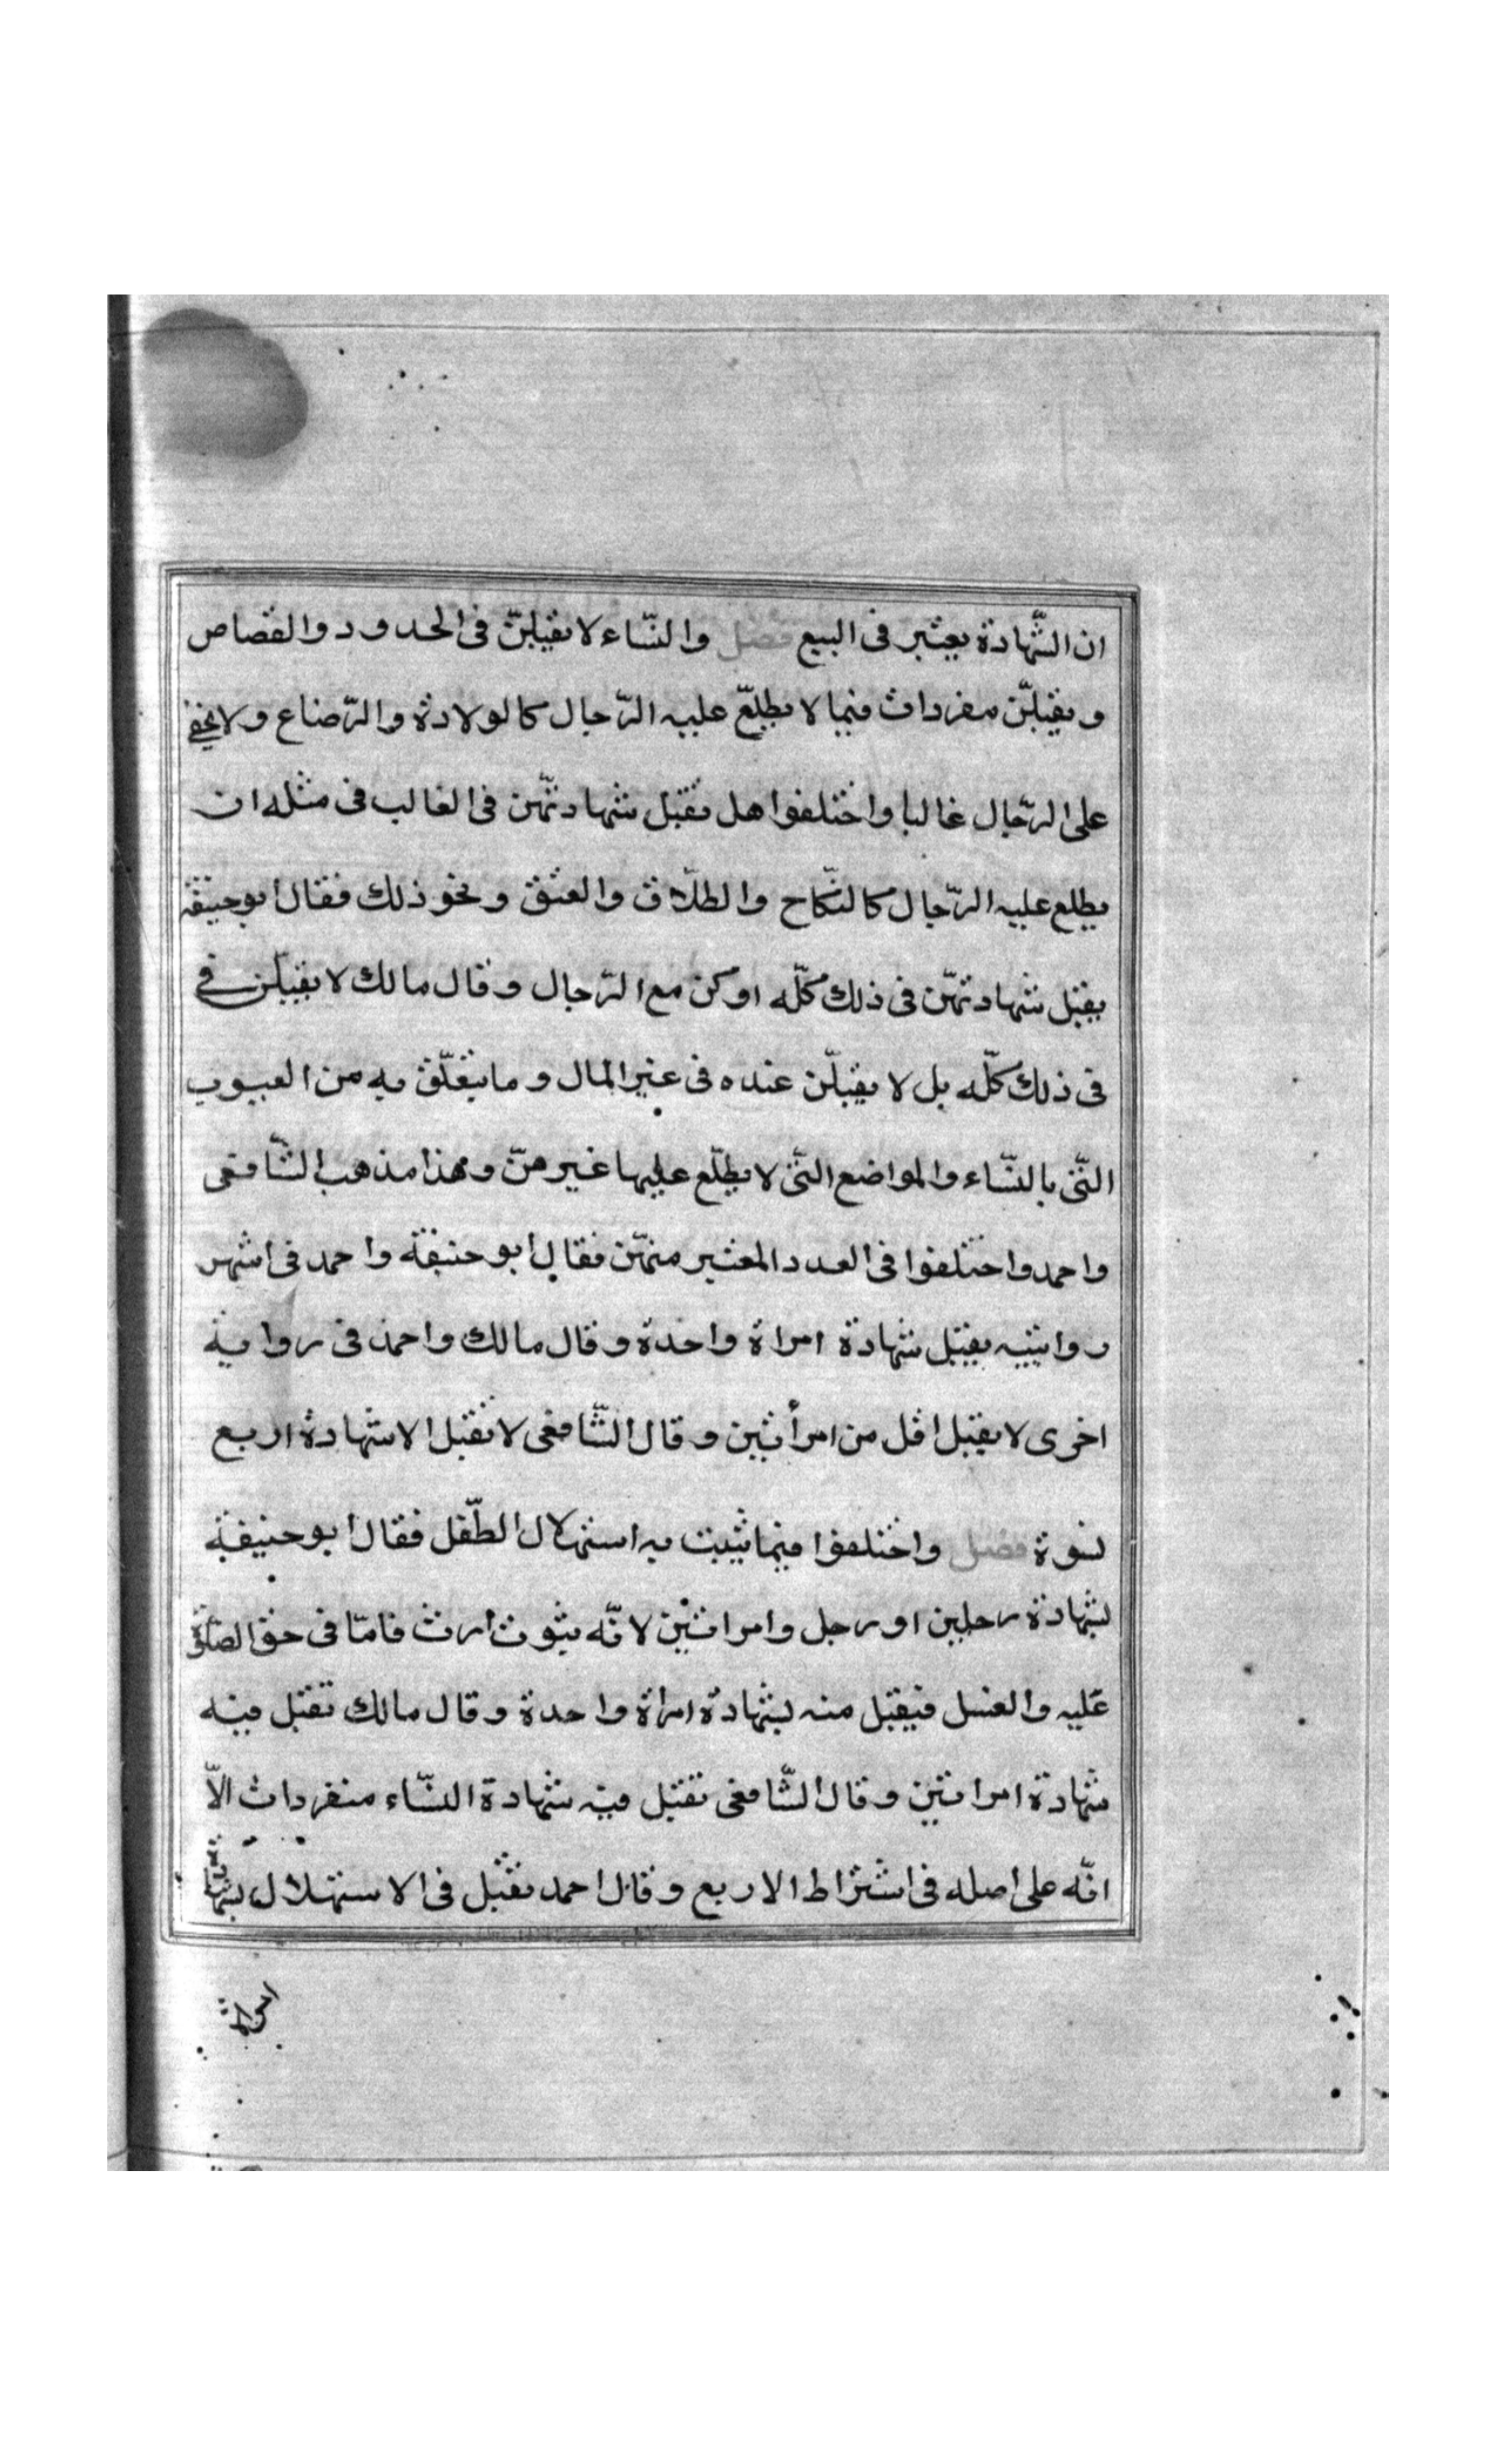 ان الشّهادة يعتبر فى البيع فصل والنّساء لا يقبلنّ فى الحدود والقصاص
و يقبلنّ مفردات فيما لا يطلّع عليه الرّجال كالولادة والرّضاع ولا يخفى
على الرّجال غالبا واختلفوا هل تقبل شهادتهنّ فى الغالب فى مثله ان
يطلع عليه الرّجال كالنّكاح والطلاق والعتق ونحو ذلك فقال ابوحنيفة
يقبل شهادتهنّ فى ذلك كلّه او كن مع الرّجال وقال مالك لا يقبلن فى
فى ذلك كلّه بل لا يقبلن عنده فى غير المال وما يتعلّق به من العيوب
التّى بالنّساء والمواضع التّى لا يطلّع عليها غيرهنّ وهذا مذهب الشّافعى
واحمد واختلفوا فى العدد المعتبر منهنّ فقال ابو حنيفة واحمد فى اشهر
روايتيه يقبل شهادة امراة واحدة وقال مالك واحمد فى رواية
اخرى لا يقبل اقل من امرأتين وقال الشّافعى لا تقبل الا شهادة اربع
نسوة فصل واختلفوا فيما يثبت به استهلال الطّفل فقال ابو حنيفة
بشهادة رجلين او رجل وامراتين لانّه ثبوت ارث فامّا فى حق الصّلوة
عليه والغسل فيقبل منه بشهادة امراة واحدة وقال مالك تقبل فيه
شهادة امراتين وقال الشّافعى تقبل فيه شهادة النسّاء منفردات الاّ
انّه على اصله فى اشتراط الاربع وقال احمد تقبل فى الاستهلال بشهادة
امراة